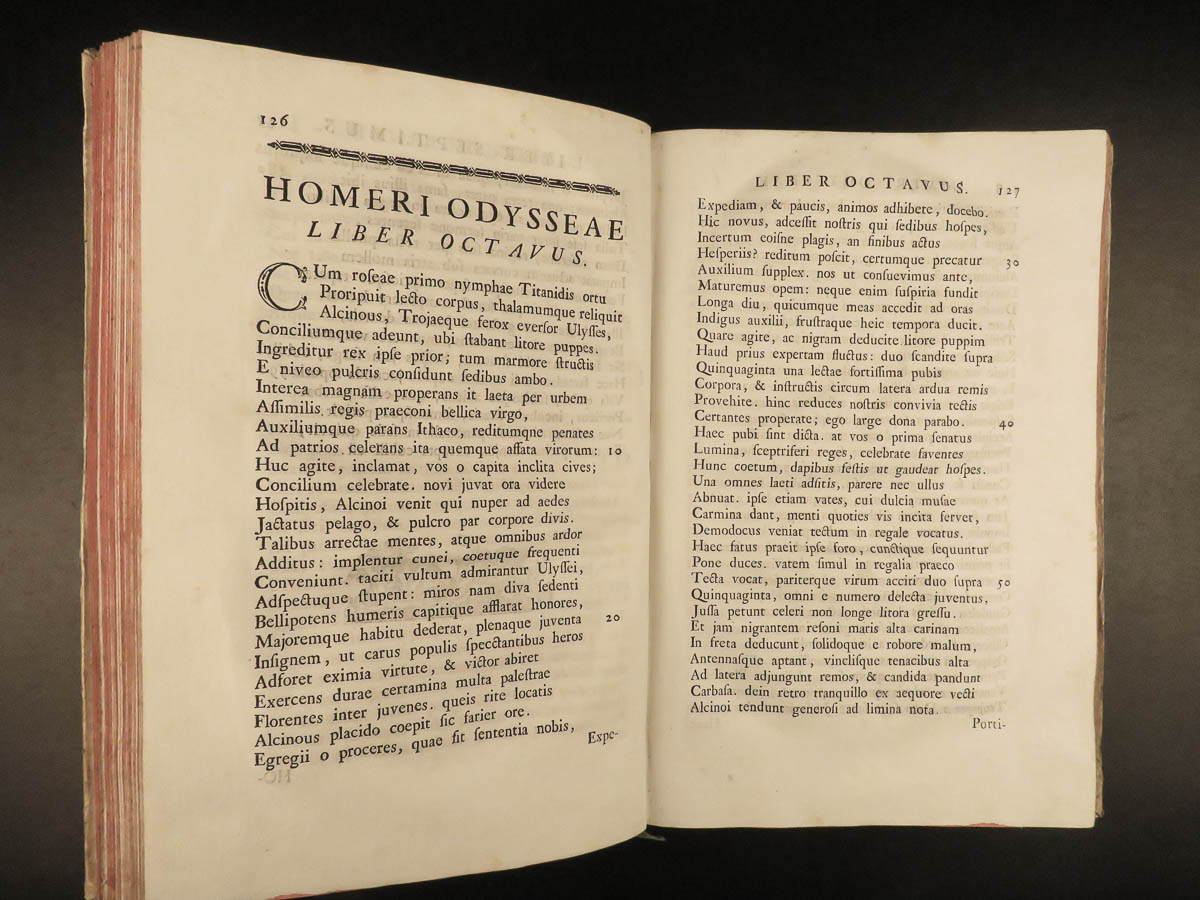 126
HOMERI ODYSSEAE
LIBER OCTAVUS.
CUm roſeae primo nymphae Titanidis ortu
Proripuit lecto corpus, thalamumque reliquit
Alcinous, Trojaeque ferox everſor Ulyſſes,
Conciliumque adeunt, ubi ſtabant litore puppes.
Ingreditur rex ipſe prior; tum marmore ſtructis
E niveo pulcris conſidunt ſedibus ambo.
Interea magnam properans it laeta per urbem
Aſſimilis regis praeconi bellica virgo,
Auxiliumque parans Ithaco, reditumque penates
Ad patrios celerans ita quemque affata virorum: 10
Huc agite, inclamat, vos o capita inclita cives;
Concilium celebrate. novi juvat ora videre
Hoſpitis, Alcinoi venit qui nuper ad aedes
Jactatus pelago, & pulcro par corpore divis.
Talibus arrectae mentes, atque omnibus ardor
Additus: implentur cunei, coetuque frequenti
Conveniunt. taciti vultum admirantur Ulyſſei,
Adſpectuque ſtupent: miros nam diva ſedenti
Bellipotens humeris capitique afflarat honores,
Majoremque habitu dederat, plenaque juventa 20
Inſignem, ut carus populis ſpectantibus heros
Adforet eximia virtute, & victor abiret
Exercens durae certamina multa paleſtrae
Florentes inter juvenes. queis rite locatis
Alcinous placido coepit ſic farier ore.
Egregii o proceres, quae ſit ſententia nobis,
Expe-
LIBER OCTAVUS. 127
Expediam, & paucis, animos adhibete, docebo.
Hic novus, adceſſit noſtris qui ſedibus hoſpes,
Incertum eoiſne plagis, an finibus actus
Heſperiis? reditum poſcit, certumque precatur 30
Auxilium ſupplex. nos ut conſuevimus ante,
Maturemus opem: neque enim ſuſpiria fundit
Longa diu, quicumque meas accedit ad oras
Indigus auxilii, fruſtraque heic tempora ducit.
Quare agite, ac nigram deducite litore puppim
Haud prius expertam fluctus: duo ſcandite ſupra
Quinquaginta una lectae fortiſſima pubis
Corpora, & inſtructis circum latera ardua remis
Provehite. hinc reduces noſtris convivia tectis
Certantes properate; ego large dona parabo. 40
Haec pubi ſint dicta. at vos o prima ſenatus
Lumina, ſceptriferi reges, celebrate faventes
Hunc coetum, dapibus feſtis ut gaudear hoſpes.
Una omnes laeti adſitis, parere nec ullus
Abnuat. ipſe etiam vates, cui dulcia muſae
Carmina dant, menti quoties vis incita fervet,
Demodocus veniat tectum in regale vocatus.
Haec fatus praeit ipſe foro, cunctique ſequuntur
Pone duces. vatem ſimul in regalia praeco
Tecta vocat, pariterque virum acciti duo ſupra 50
Quinquaginta, omni e numero delecta juventus,
Juſſa petunt celeri non longe litora greſſu.
Et jam nigrantem reſoni maris alta carinam
In freta deducunt, ſolidoque e robore malum,
Antennaſque aptant, vincliſque tenacibus alta
Ad latera adjungunt remos, & candida pandunt
Carbaſa. dein retro tranquillo ex aequore vecti
Alcinoi tendunt generoſi ad limina nota.
Porti-